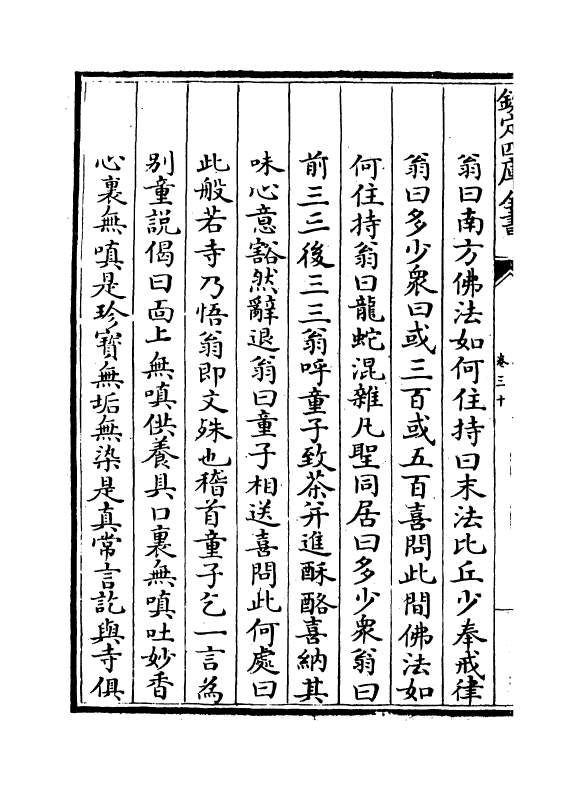 欽定四庫全書
卷三十
翁曰南方佛法如何住持曰末法比丘少奉戒律
翁曰多少衆曰或三百或五百喜問此間佛法如
何住持翁曰龍蛇混雜凡聖同居曰多少衆翁曰
前三三後三三翁呼童子致茶并進酥酪喜納其
味心意豁然辭退翁曰童子相送喜問此何處曰
此般若寺乃悟翁即文殊也稽首童子乞一言為
别童説偈曰靣上無嗔供養具口裏無嗔吐妙香
心裏無嗔是珍寶無垢無染是真常言訖與寺俱